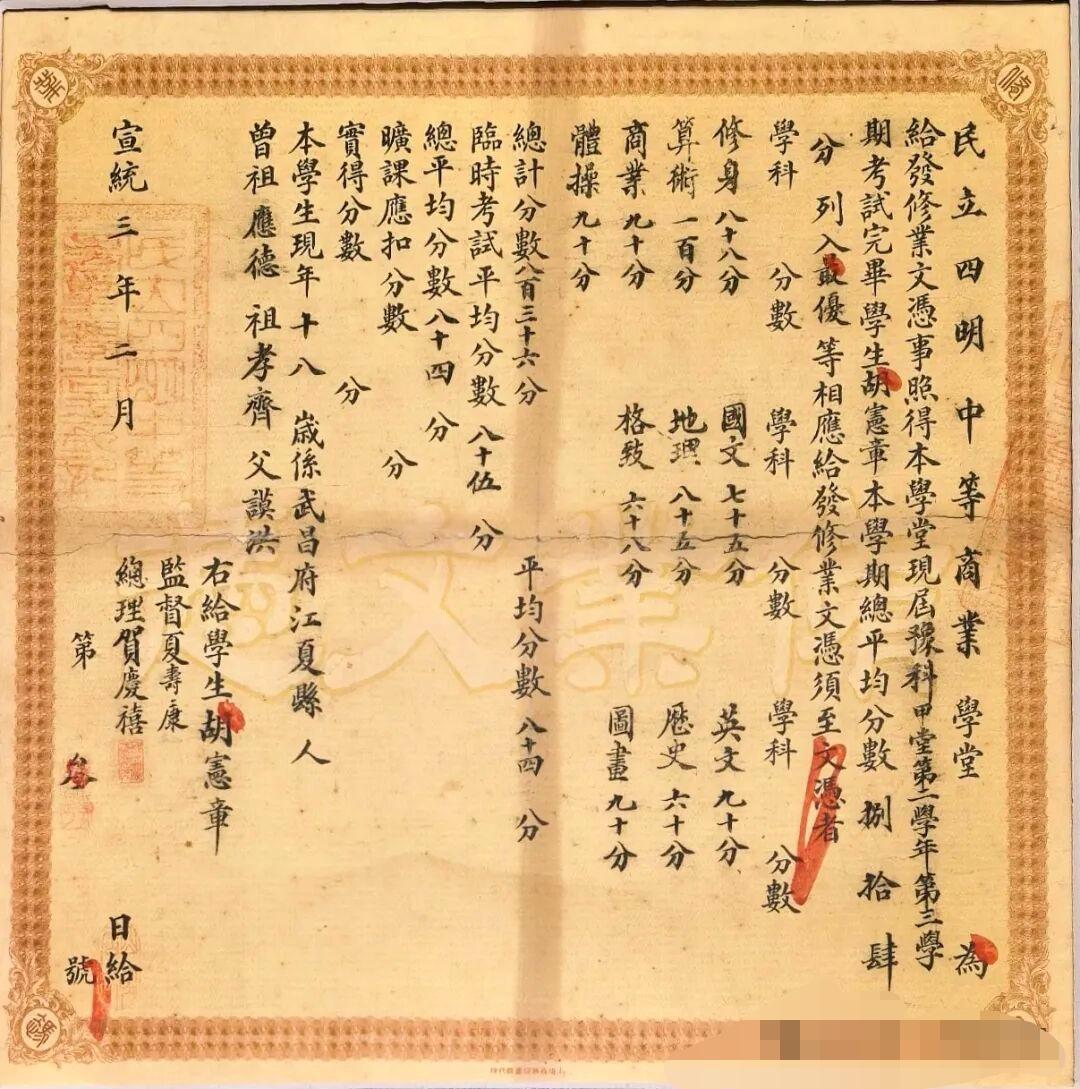 民立四明中等商業學堂為
給發修業文憑事照得本學堂現屆豫科甲堂第二學年第三學
期考試完畢學生胡憲章本學期總平均分數捌拾肆
分列入最優等相應給發修業文憑須至文憑者
學科 分數 學科 分數 學科 分數
修身 八十八分 國文 七十五分 英文 九十分
算術 一百分 地理 八十五分 歷史 六十分
商業 九十分 格致 六十八分 圖畫 九十分
體操 九十分
總計分數八百三十六分 平均分數 八十四分
臨時考試平均分數 八十伍分
總平均分數 八十四分
曠課應扣分數 分
實得分數 分
本學生現年十八歲係武昌府江夏縣人
曾祖應德 祖孝齊 父謨洪
右給學生胡憲章
監督夏壽康
總理賀慶禧
宣統三年二月 日給
第 叁 號
修業文憑
修
業
憑